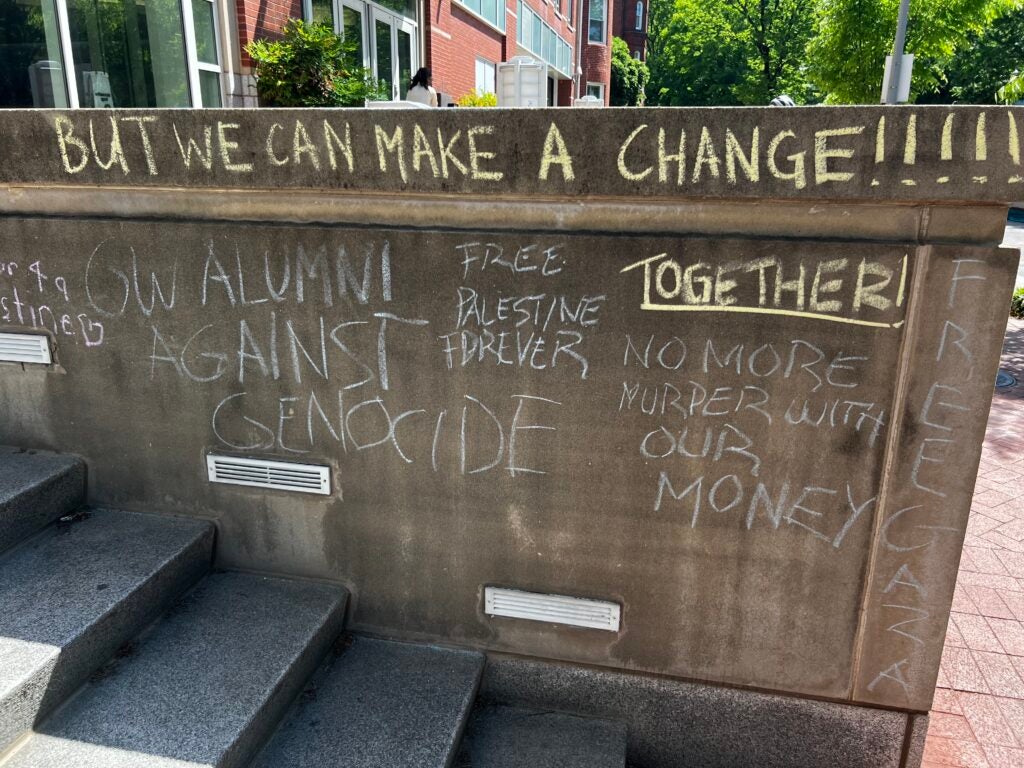 BUT WE CAN MAKE A CHANGE!!!!!
GW ALUMNI
AGAINST
GENOCIDE
FREE
PALESTINE
FOREVER
TOGETHER!
NO MORE
MURDER WITH
OUR
MONEY
FREE GAZA